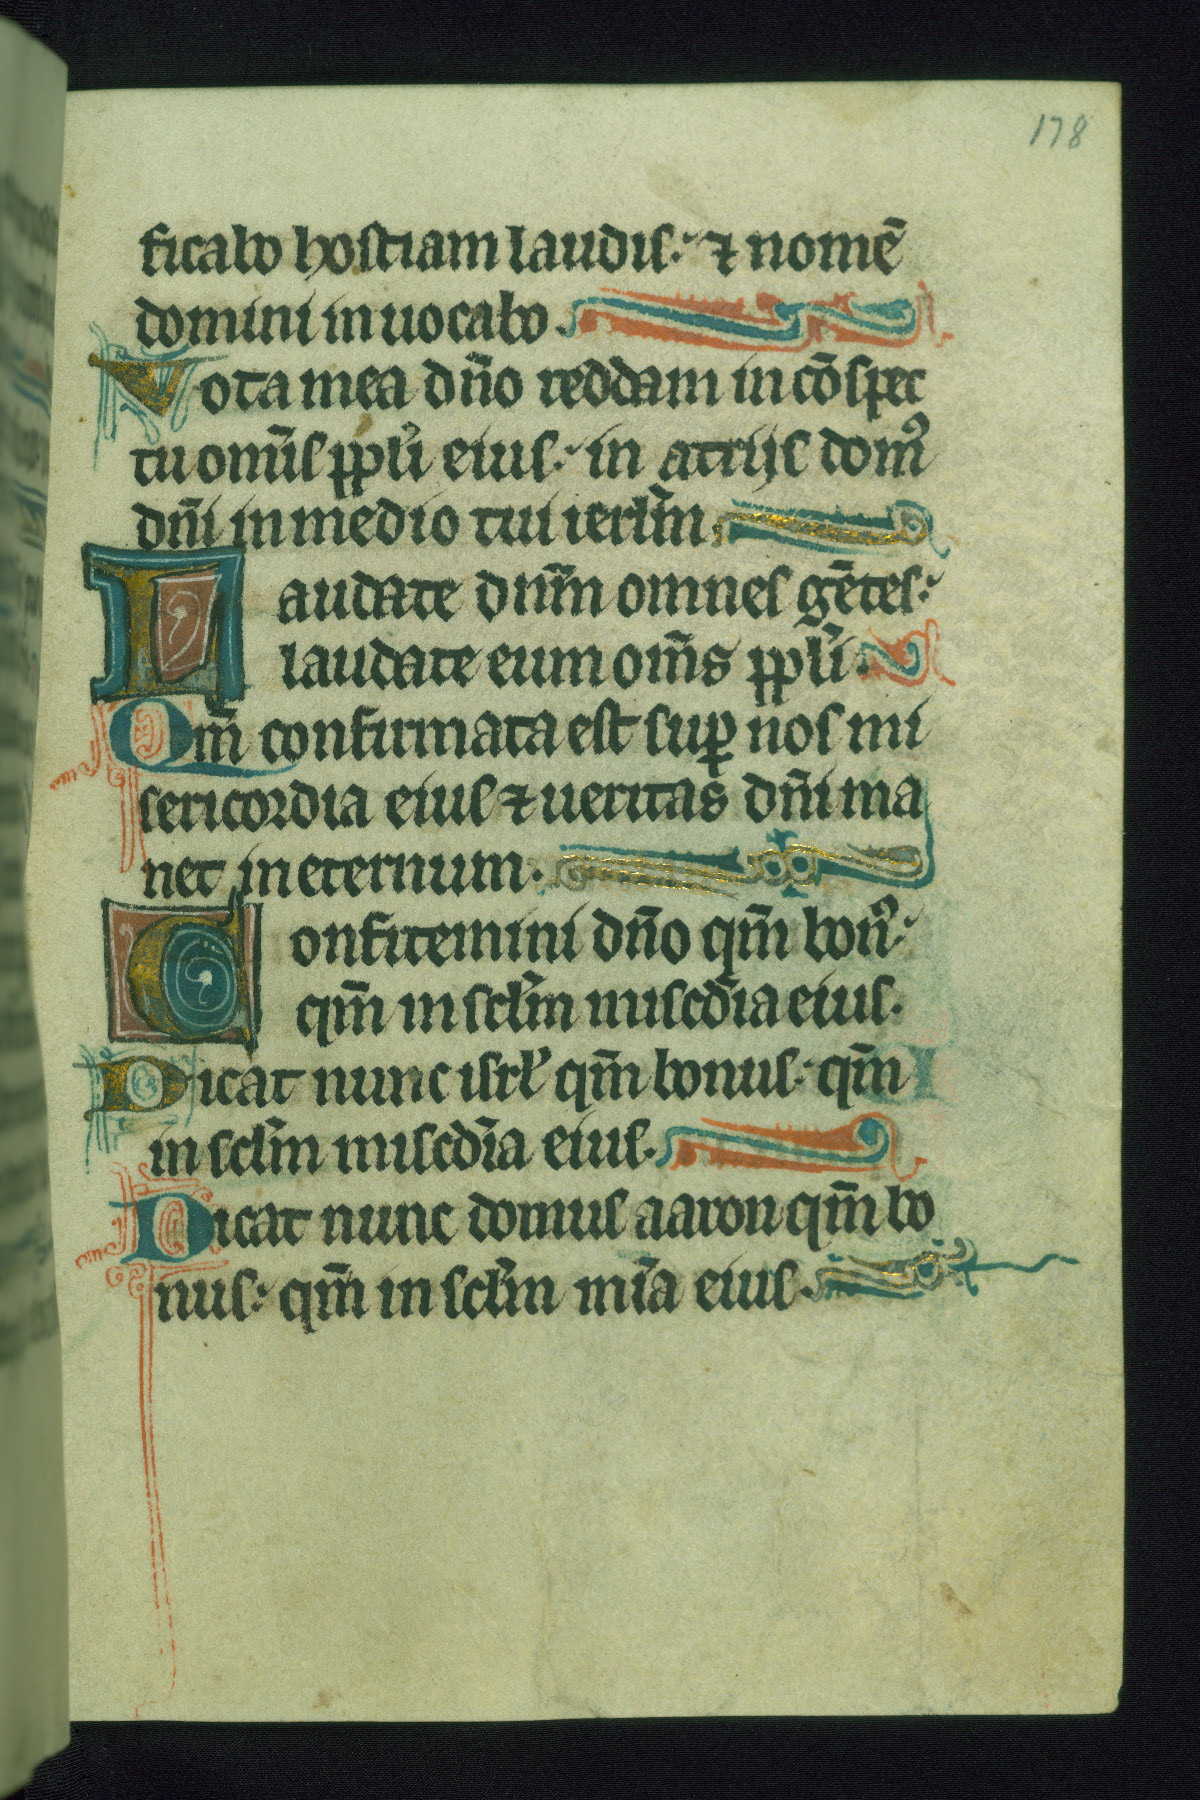 178
ficabo hostiam laudis: ⁊ nomē
domini inuocabo.
Vota mea dn̄o reddam in cōspec
tu omīs ppłi eius: in atrijs domꝰ
dn̄i in medio tui ierłm̄.
Laudate dnm̄ omnes gētes:
laudate eum om̄s ppłi.
Qm̄ confirmata est suꝑ nos mi
sericordia eius ⁊ ueritas dn̄i ma
net in eternum.
Confitemini dn̄o qm̄ bonꝰ:
qm̄ in scłm̄ miscd̄ia eius.
Dicat nunc isrł qm̄ bonus: qm̄
in scłm̄ miscd̄ia eius.
Dicat nunc domus aaron qm̄ bo
nus: qm̄ in scłm̄ mīa eius.